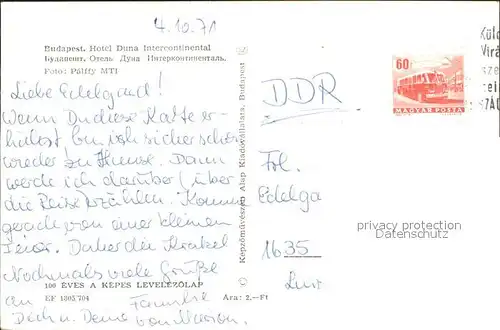 4.10.71
Budapest, Hotel Duna Intercontinental
Будапешт, Отель Дуна Интерконтиненталь.
Foto: Pálffy MTI
Liebe Edelgard!
Wenn Du diese Karte er-
hälst bin ich sicher schon
wieder zu Hause. Dann
werde ich darüber (über
die Reise) erzählen. Komme
gerade von einer kleinen
Feier. Daher die Krakel
Nochmals viele Grüße
100 ÉVES A KÉPES LEVELEZŐLAP
an Familie
EF 1805/704 Ára: 2.-Ft
Dich u. Deine
von
Képzőművészeti Alap Kiadóvállalata, Budapest
60 f
MAGYAR POSTA
Küld
Virá
sze
tel
SZÁL
DDR
Frl.
Edelga
privacy protection
www.oldthing.de
1635